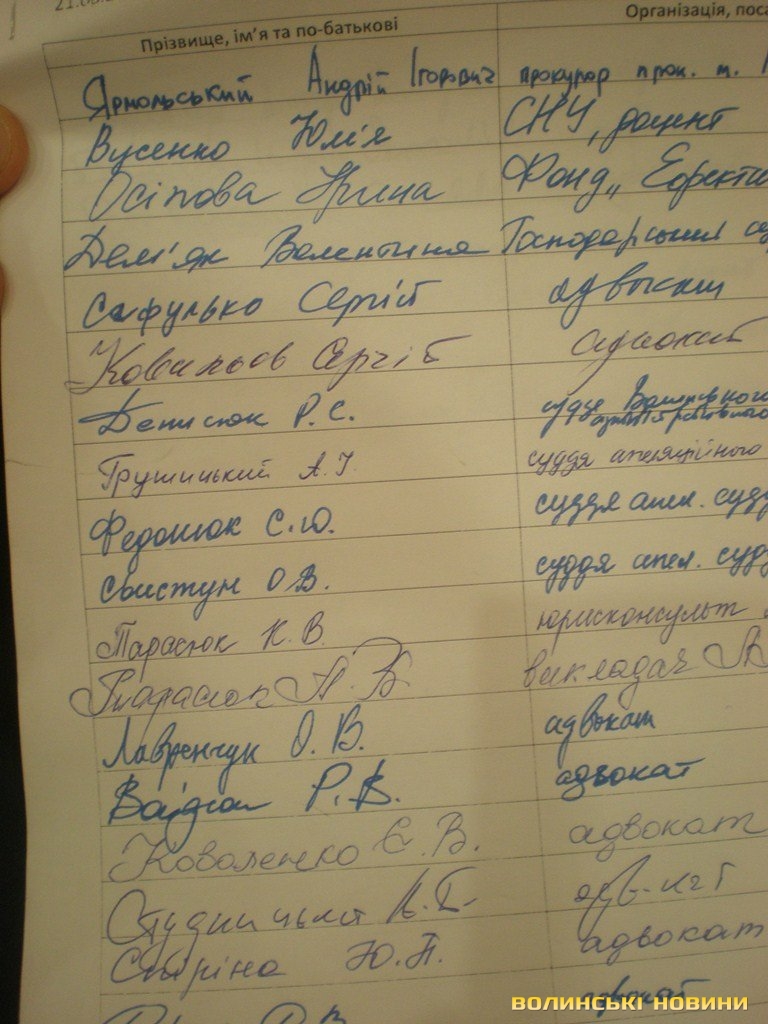 Прізвище, ім'я та по-батькові Організація, поса
Ярмольський Андрій Ігорович прокурор прок. м.
Вусенко Юлія СНУ, доцент
Осіпова Ірина Фонд „Ефекти
Дем'як Валентина Господарський су
Сафулько Сергій адвокат
Ковальов Сергій адвокат
Денисюк Р. С. суддя Волинського
адміністративного
Грушицький А. І. суддя апеляційного
Федонюк С.Ю. суддя апел. суду
Свистун О В. суддя апел. суду
Тарасюк К. В. юрисконсульт
Тарасюк А. Б викладач
Лавренчук О. В. адвокат
Р. В. адвокат
Коваленко Є. В. адвокат
адв-кат
Спіріна Ю.П. адвокат
адвокат
ВОЛИНСЬКІ НОВИНИ